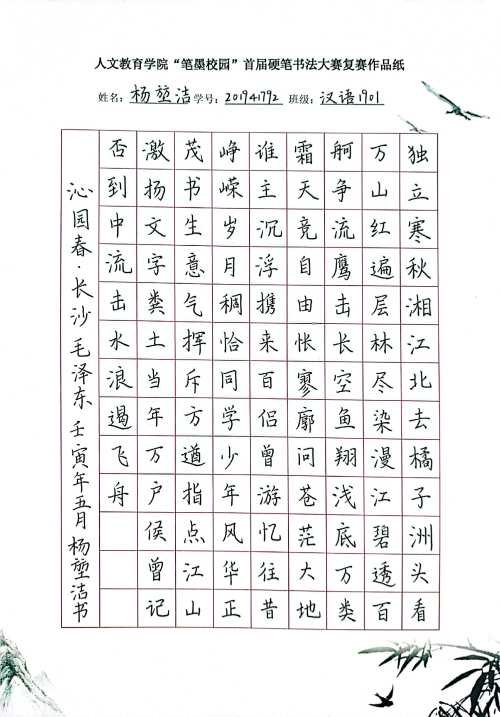 人文教育学院“笔墨校园”首届硬笔书法大赛复赛作品纸
姓名：杨堃洁 学号：201941792 班级：汉语1901
独立寒秋湘江北去橘子洲头看
万山红遍层林尽染漫江碧透百
舸争流鹰击长空鱼翔浅底万类
霜天竞自由怅寥廓问苍茫大地
谁主沉浮携来百侣曾游忆往昔
峥嵘岁月稠恰同学少年风华正
茂书生意气挥斥方遒指点江山
激扬文字粪土当年万户侯曾记
否到中流击水浪遏飞舟
沁园春·长沙 毛泽东 壬寅年五月 杨堃洁书